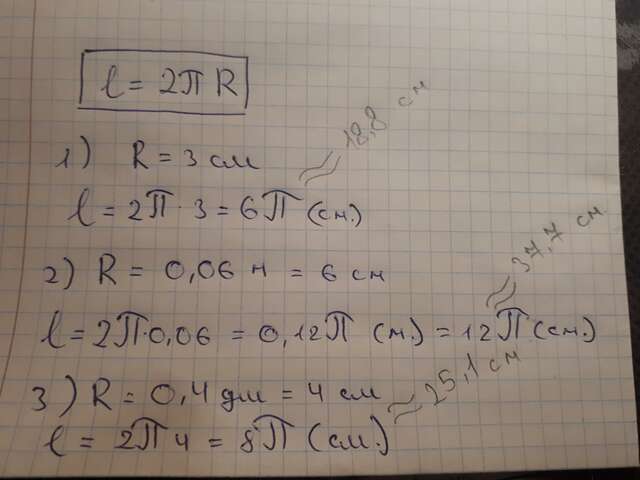 l = 2π R
1) R = 3 см
l = 2π · 3 = 6π (см.) ≈ 18,8 см
2) R = 0,06 м = 6 см
l = 2π·0,06 = 0,12π (м.) = 12π (см.) ≈ 37,7 см
3) R = 0,4 дм = 4 см
l = 2π 4 = 8π (см.) ≈ 25,1 см